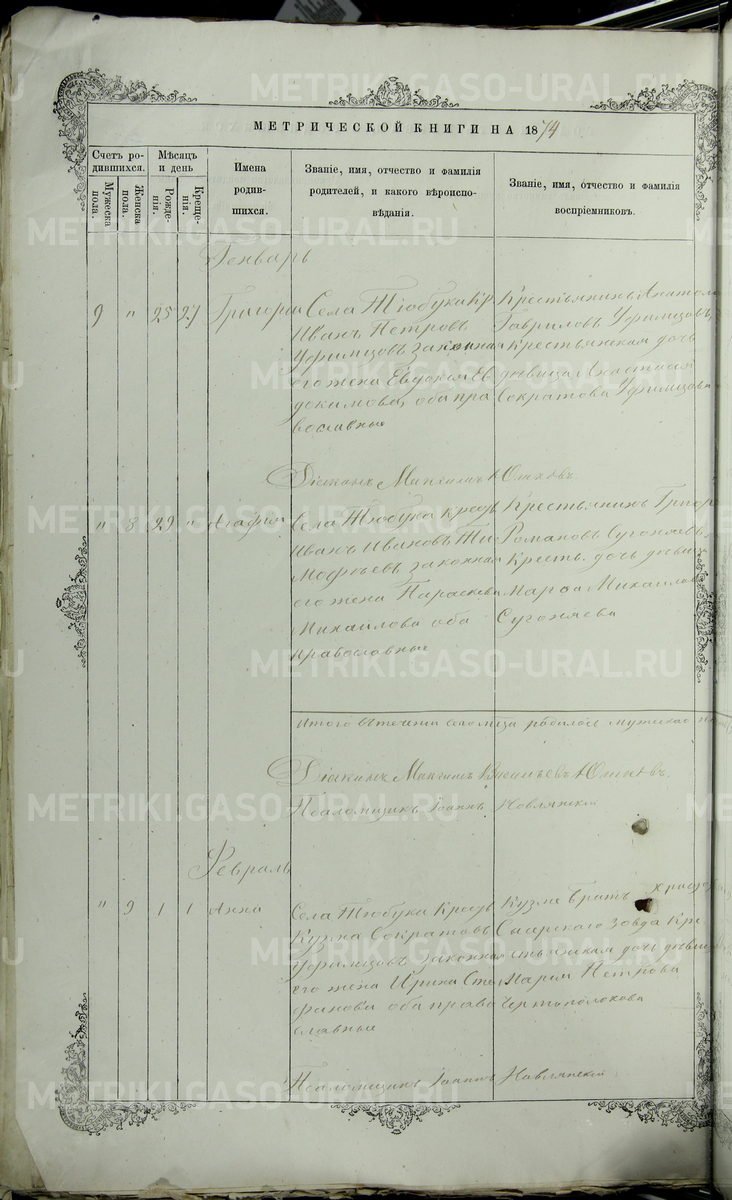 МЕТРИЧЕСКОЙ КНИГИ НА 1874
Счетъ родившихся.
Мужеска пола.
Женска пола.
Мѣсяцъ и день
Рожденія.
Крещенія.
Имена
родив-
шихся.
Званіе, имя, отчество и фамилія
родителей, и какого вѣроиспо-
вѣданія.
Званіе, имя, отчество и фамилія
воспріемниковъ.
Генварь
9 " 25 27 Григорій
Села Тюбука Кр
Иванъ Петровъ
Уфимцовъ законная
его жена Евдокія Ев
докимова, оба пра
вославные
Крестьянинъ
Гавриловъ Уфимцовъ,
крестьянская дочь
дѣвица Анастасія
Сократова Уфимцова
Діаконъ Максимъ Юшковъ
" 8 29 " Агафія
Села Тюбука Крест
Иванъ Ивановъ Ти
мофѣевъ законная
его жена Параскева
Михаилова оба
православные
Крестьянинъ Григор
Романовъ Сугоняевъ
Кресть. дочь дѣвиц
Марѳа Михайлова
Сугоняева
Итого въ теченіи сего м͠ца родилось мужескаго
Діаконъ Максимъ Васильевъ Юшковъ.
Псаломщикъ Іоаннъ Новлянскій
Февраль
" 9 1 1 Анна
Села Тюбука Крест
Кузма Сократовъ
Уфимцовъ законная
его жена Ирина Сте
фанова оба право
славные
Кузме братъ
Сысерскаго Зовда Кре
стьянская дочь дѣвиц
Марія Петрова
Чертополохова
Псаломщикъ Іоаннъ Новлянскій
METRIKI.GASO-URAL.RU